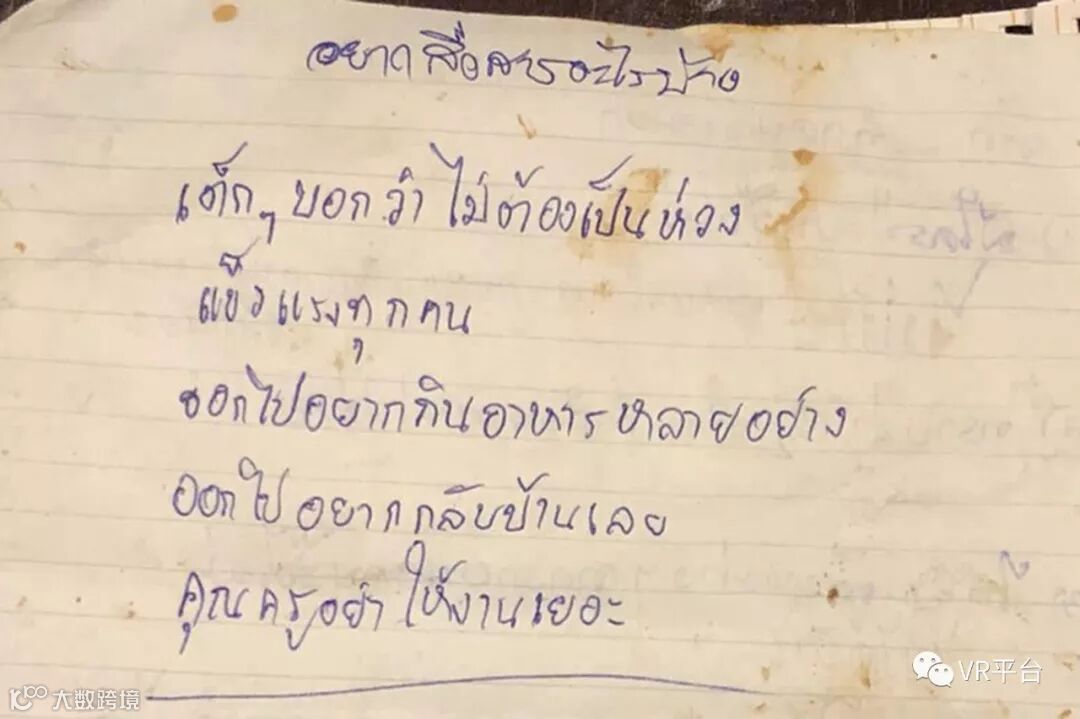 อยากสื่อสารอะไรบ้าง
เด็กๆ บอกว่า ไม่ต้องเป็นห่วง
แข็งแรงทุกคน
ออกไปอยากกินอาหารหลายอย่าง
ออกไปอยากกลับบ้านเลย
คุณครูอย่าให้งานเยอะ
VR平台
大数跨境